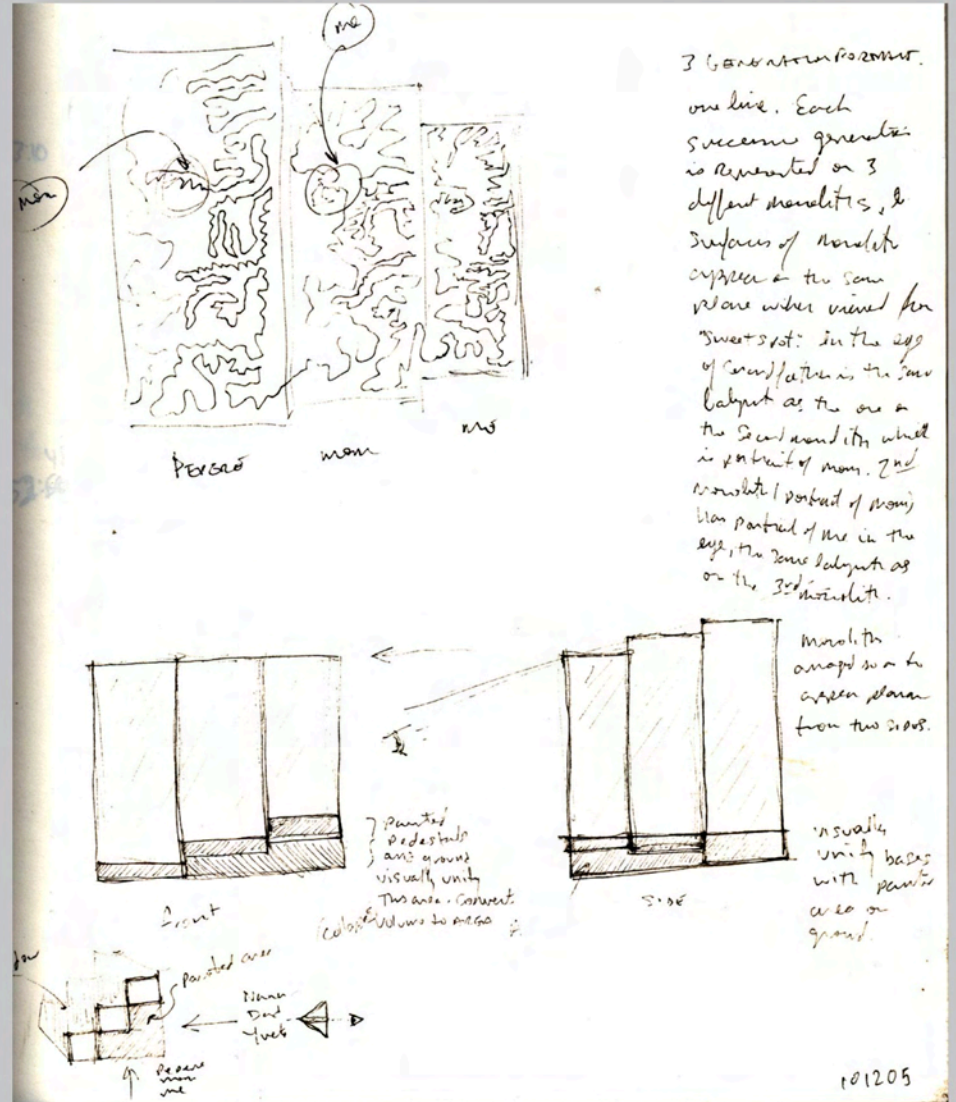 me
mom
3 GENERATION PORTRAIT.
one line. Each
successive generation
is represented on 3
different monoliths, &
surfaces of monolith
appear on the same
plane when viewed from
"sweet spot." in the eye
of Grandfather is the same
labyrinth as the one on
the second monolith which
is portrait of mom. 2nd
monolith (portrait of mom)
has portrait of me in the
eye, the same labyrinth as
on the 3rd monolith.
PEPERE
mom
me
monoliths
arranged so as to
appear planar
from two sides.
painted
pedestals
and ground
visually unify
this area. Convert
volume to AREA
front
SIDE
visually
unify bases
with painted
area on
ground.
painted area
Dad
Pepere
mom
me
101205